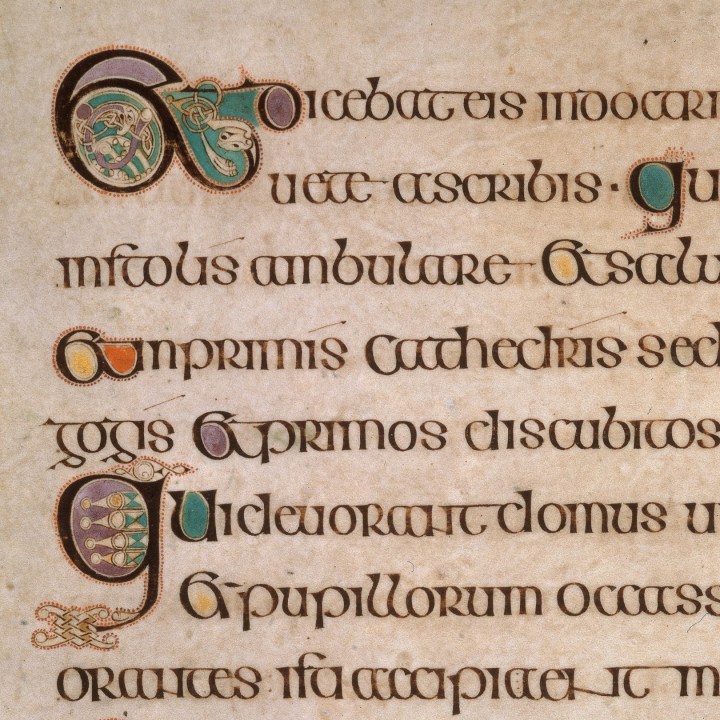 Et dicebat eis indoctri
uete ascribis · qu
instolis ambulare et salu
et inprimis cathedris sed
gogis et primos discubitos
Qui deuorant domus u
et pupillorum occass
orantes isti accipient m